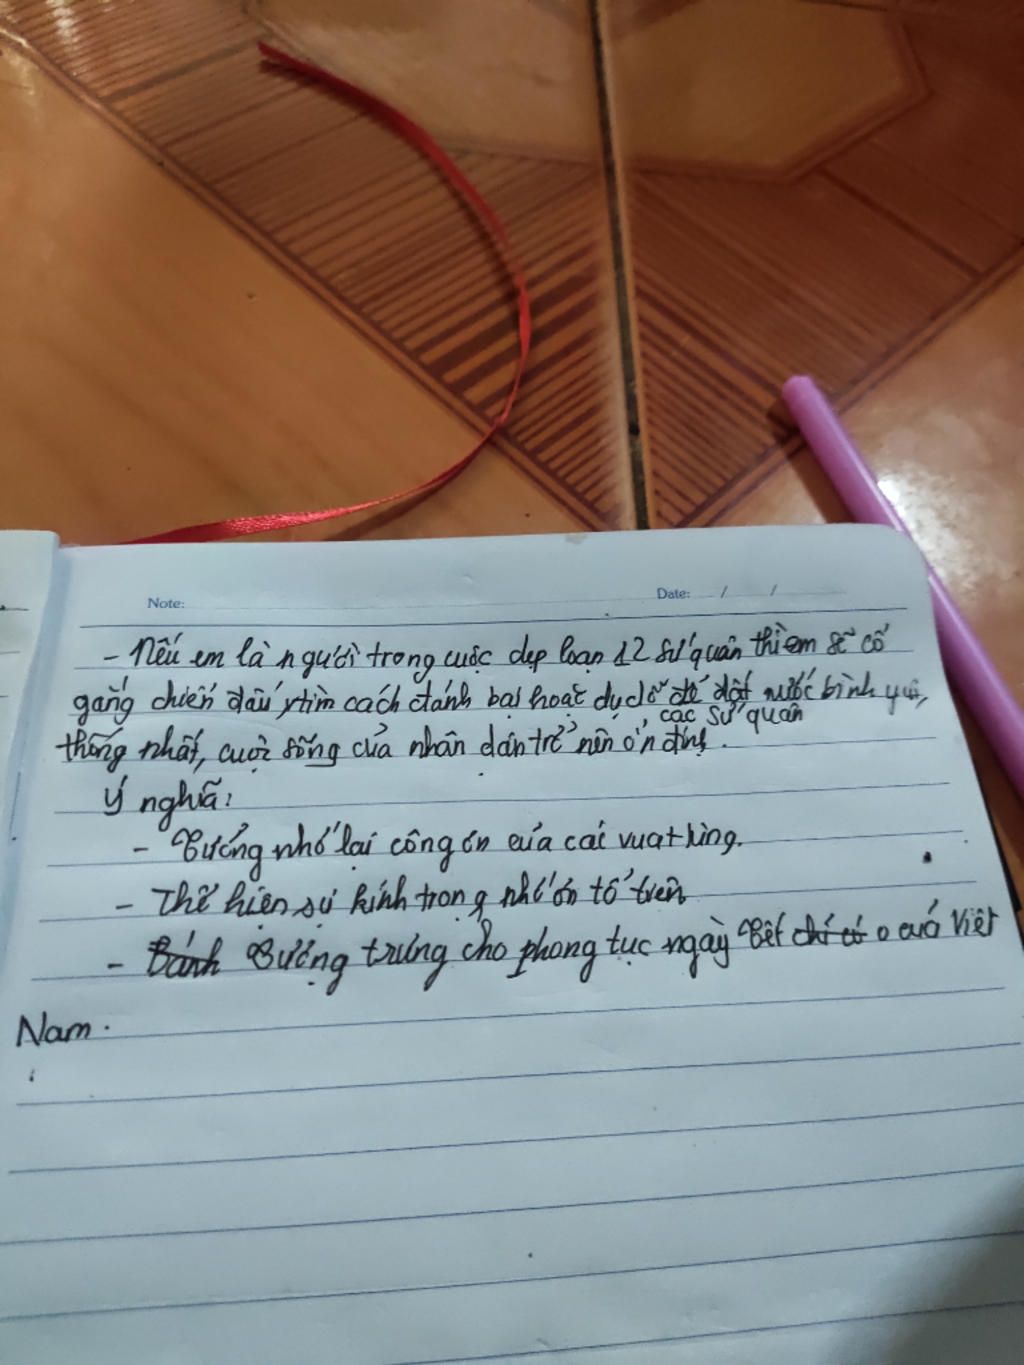 Note: Date: / /
- Nếu em là người trong cuộc dẹp loạn 12 sứ quân thì em sẽ cố
gắng chiến đấu, tìm cách đánh bại hoặc dụ dỗ để đất nước bình yên,
các sứ quân
thống nhất, cuộc sống của nhân dân trở nên ổn định.
Ý nghĩa:
- Tưởng nhớ lại công ơn của các vua Hùng.
- Thể hiện sự kính trọng nhớ ơn tổ tiên
- Bánh Tượng trưng cho phong tục ngày Tết chỉ có ở Việt
Nam.